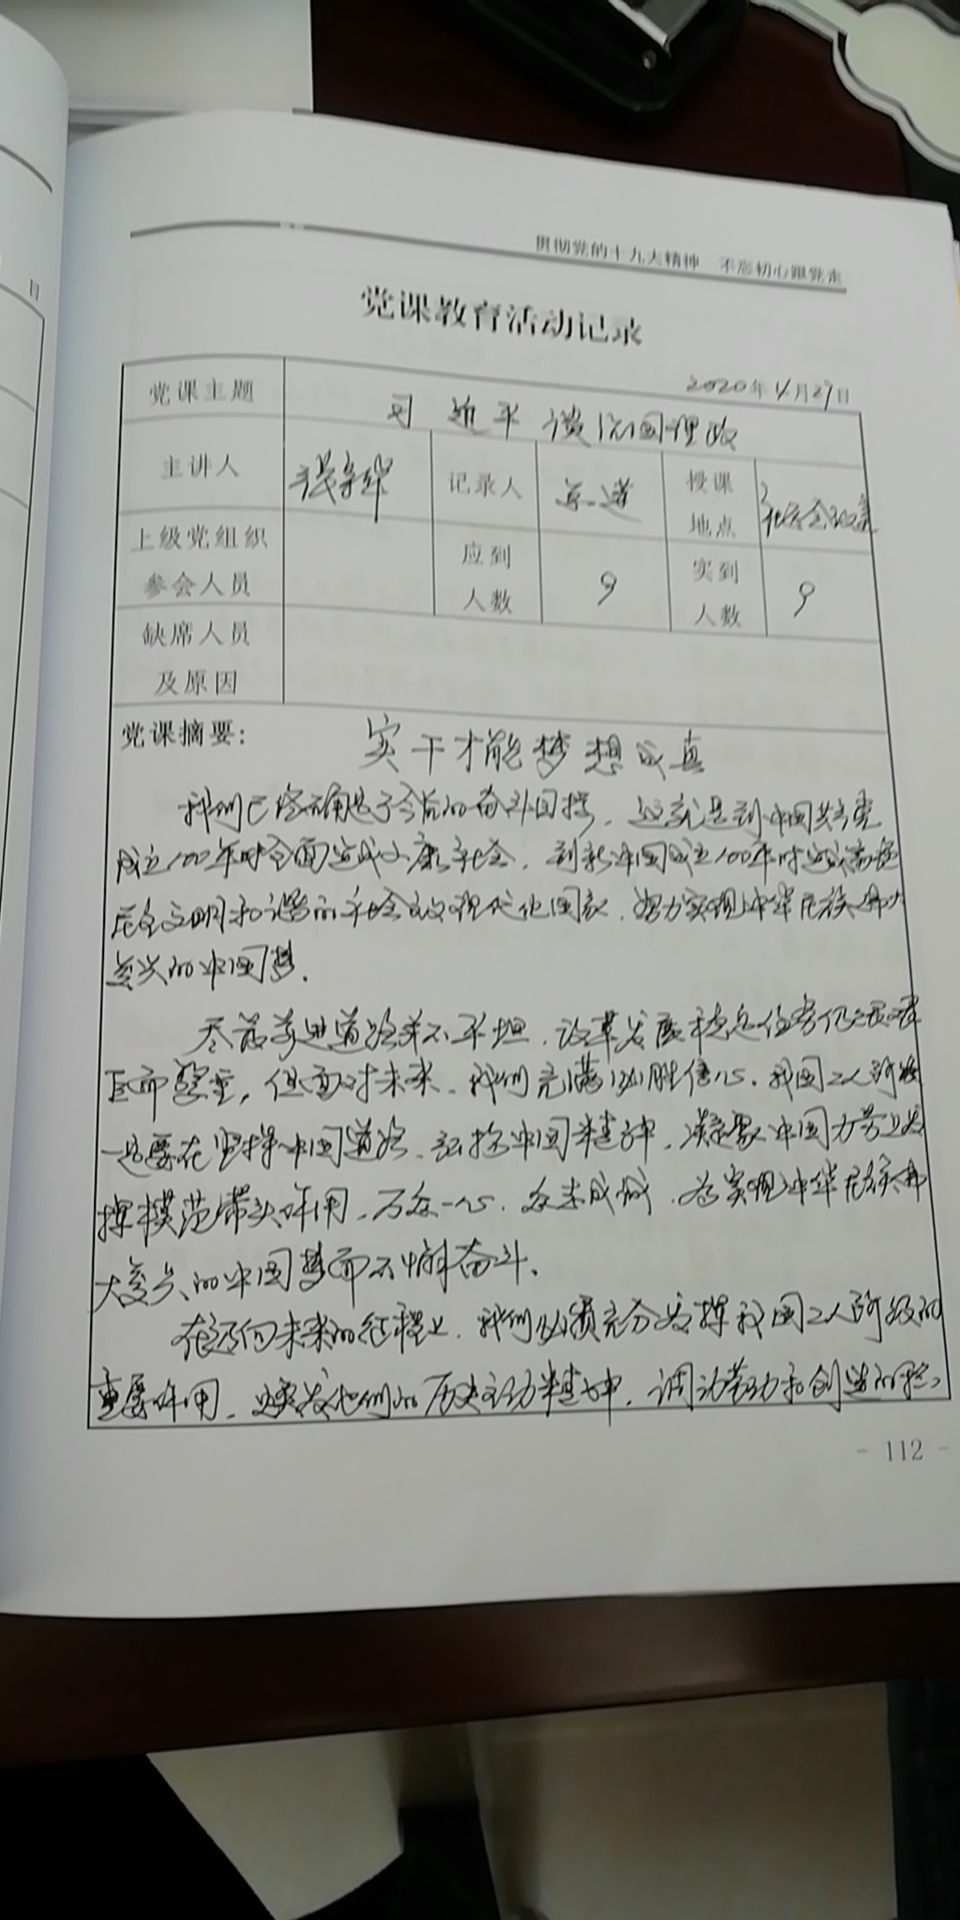 日
贯彻党的十九大精神 不忘初心跟党走
党课教育活动记录
2020年4月29日
党课主题 习近平谈治国理政
主讲人 记录人 授课地点
上级党组织参会人员 应到人数 9 实到人数 9
缺席人员及原因
党课摘要: 实干才能梦想成真
我们已经确定了今后的奋斗目标，这就是到中国共产党
成立100年时全面建成小康社会，到新中国成立100年时建成富强
民主文明和谐的社会主义现代化国家，努力实现中华民族伟大
复兴的中国梦.
尽管前进道路并不平坦，改革发展稳定任务仍然艰
巨而繁重，但面对未来，我们充满必胜信心，我国工人阶级
一定要在坚持中国道路、弘扬中国精神，凝聚中国力量上发
挥模范带头作用，万众一心，众志成城，为实现中华民族伟
大复兴的中国梦而不懈奋斗、
在迈向未来的征程上，我们必须充分发挥我国工人阶级的
重要作用，焕发他们的历史主动精神，调动劳动和创造的积
- 112 -